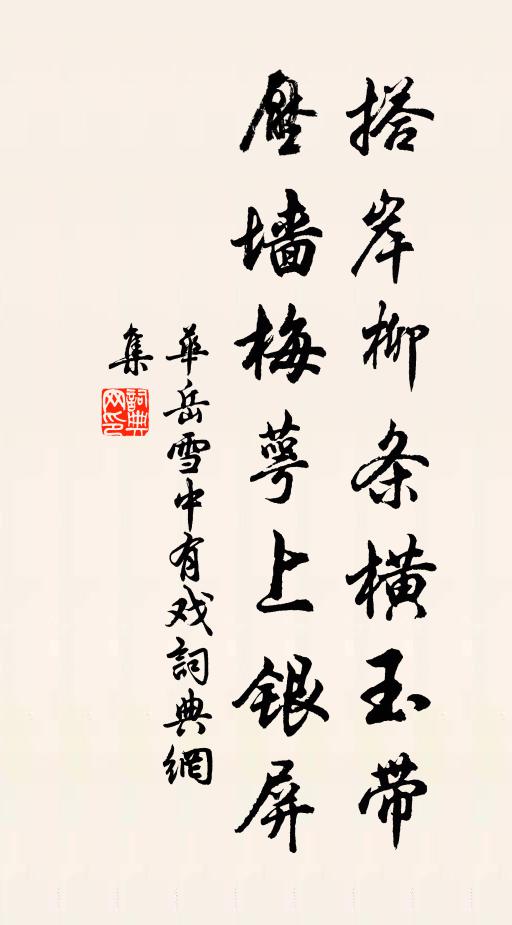 搭岸柳条横玉带
压墙梅萼上银屏
華岳雪中有戏詞典網
集
詞典
网印